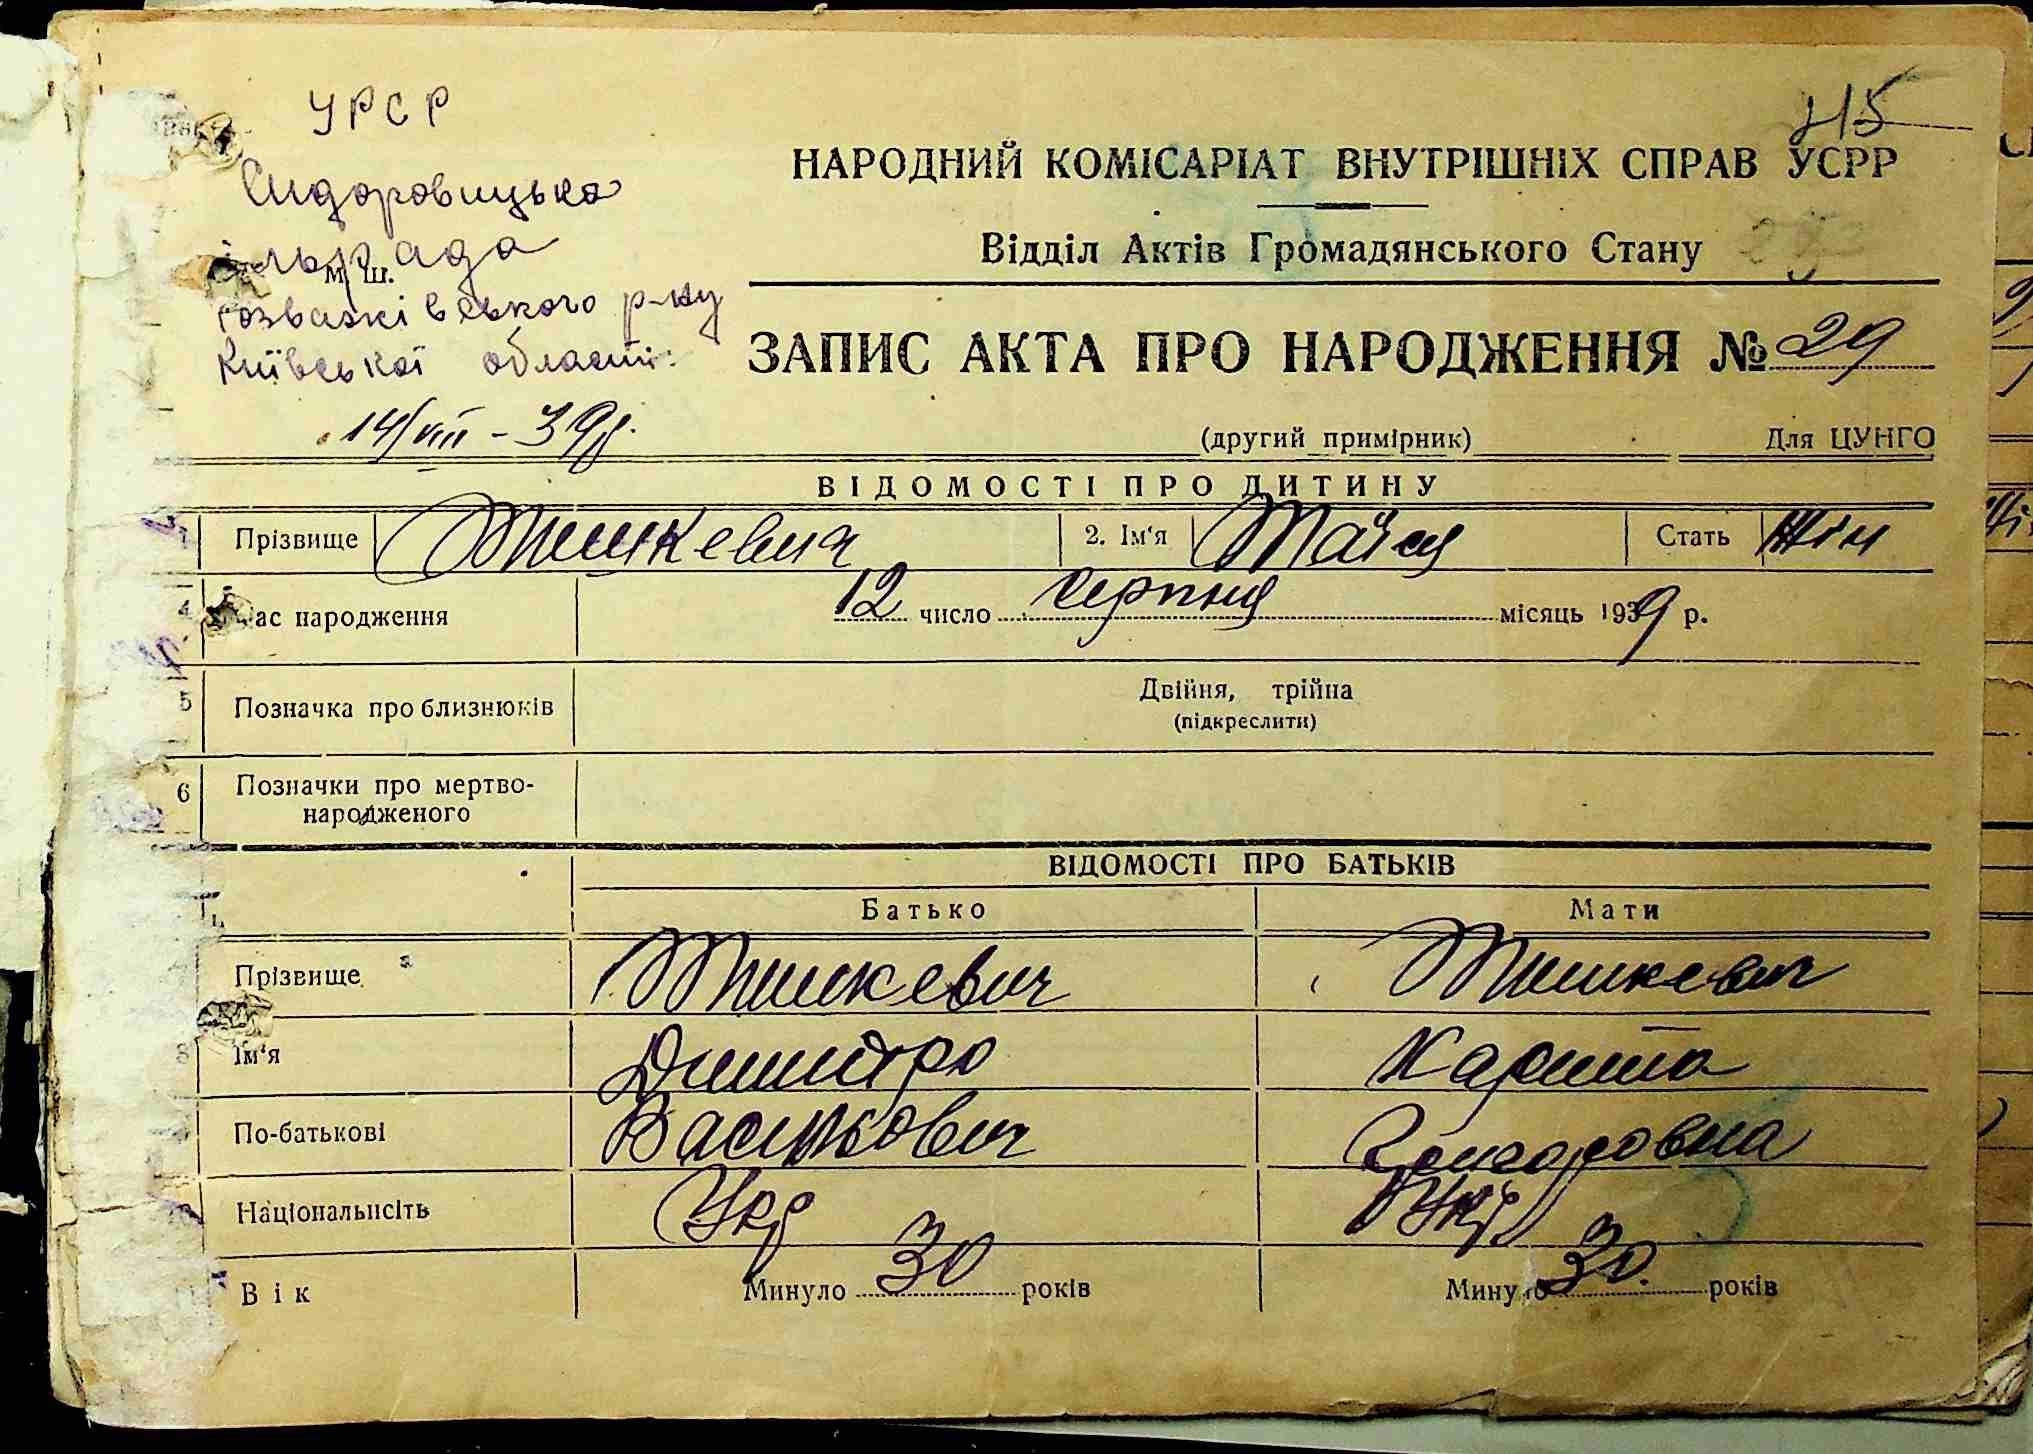 УРСР
415
Сидоровицька
НАРОДНИЙ КОМІСАРІАТ ВНУТРІШНІХ СПРАВ УСРР
ільрада
м. ш.
Відділ Актів Громадянського Стану
Розважівського р-ну
Київської області
ЗАПИС АКТА ПРО НАРОДЖЕННЯ № 29
14/VIII - 39 р.
(другий примірник)
Для ЦУНГО
ВІДОМОСТІ ПРО ДИТИНУ
1 Прізвище Тишкевич 2. Ім'я Таїся Стать Жін
4 Час народження 12 число серпня місяць 1939 р.
5 Позначка про близнюків Двійня, трійна
(підкреслити)
6 Позначки про мертво-
народженого
ВІДОМОСТІ ПРО БАТЬКІВ
Батько Мати
Прізвище Тишкевич Тишкевич
8 Ім'я Дмитро Харитіна
По-батькові Васильович Григоровна
Національність Укр Укр
Вік Минуло 30 років Минуло 30 років